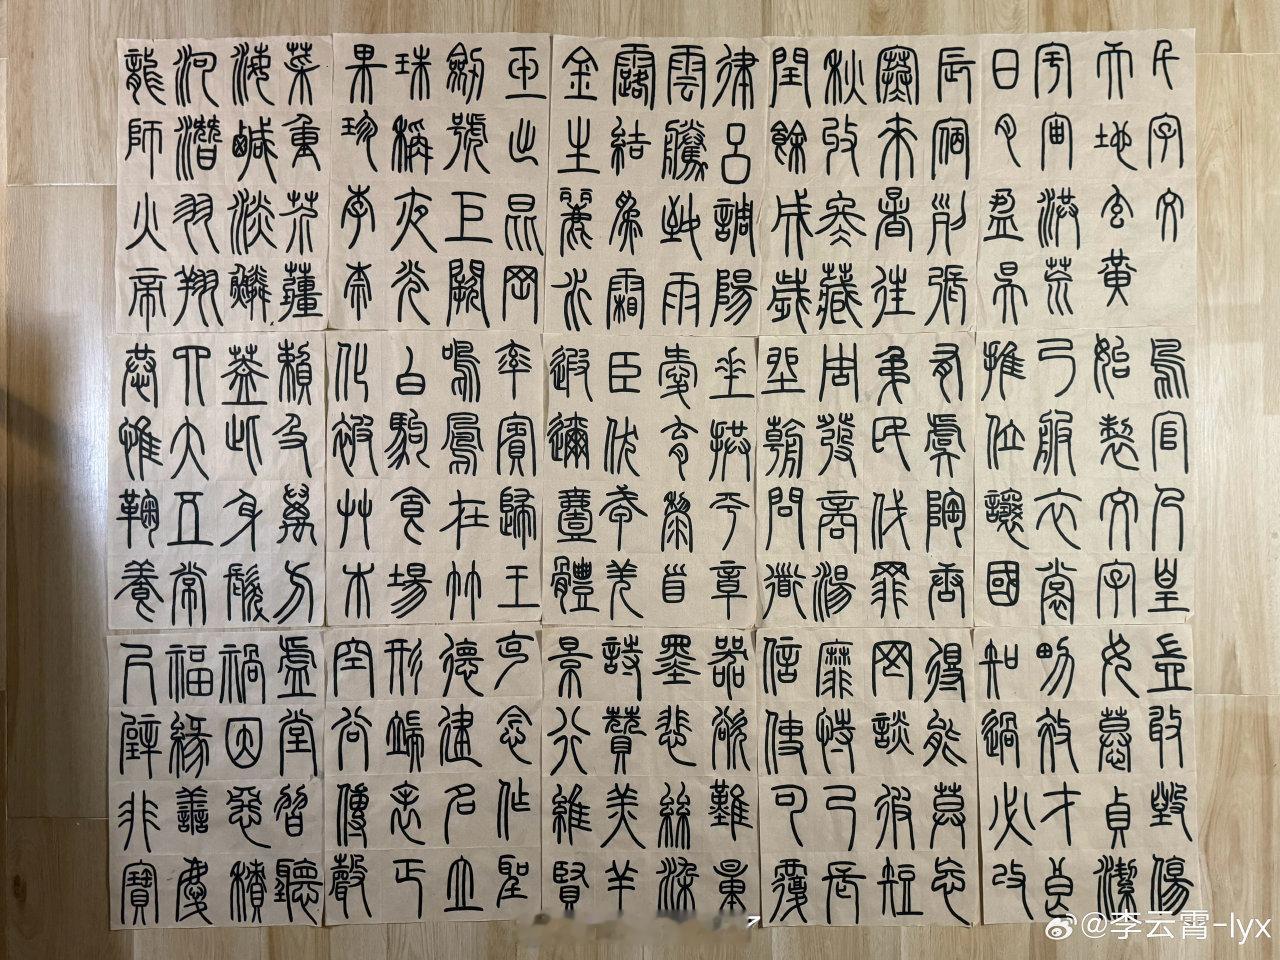 千字文
天地玄黃
宇宙洪荒
日月盈昃
辰宿列張
寒來暑往
秋收冬藏
閏餘成歲
律呂調陽
雲騰致雨
露結為霜
金生麗水
玉出崑岡
劍號巨闕
珠稱夜光
果珍李柰
菜重芥薑
海鹹淡鱗
河潛羽翔
龍師火帝
鳥官人皇
始製文字
乃服衣裳
推位讓國
有虞陶唐
弔民伐罪
周發商湯
坐朝問道
垂拱平章
愛育黎首
臣伏戎羌
遐邇壹體
率賓歸王
鳴鳳在竹
白駒食場
化被草木
賴及萬方
蓋此身髮
四大五常
恭惟鞠養
豈敢毀傷
女慕貞潔
男效才良
知過必改
得能莫忘
罔談彼短
靡恃己長
信使可覆
器欲難量
墨悲絲染
詩贊羔羊
景行維賢
克念作聖
德建名立
形端表正
空谷傳聲
虛堂習聽
禍因惡積
福緣善慶
尺璧非寶
@李云霄-lyx